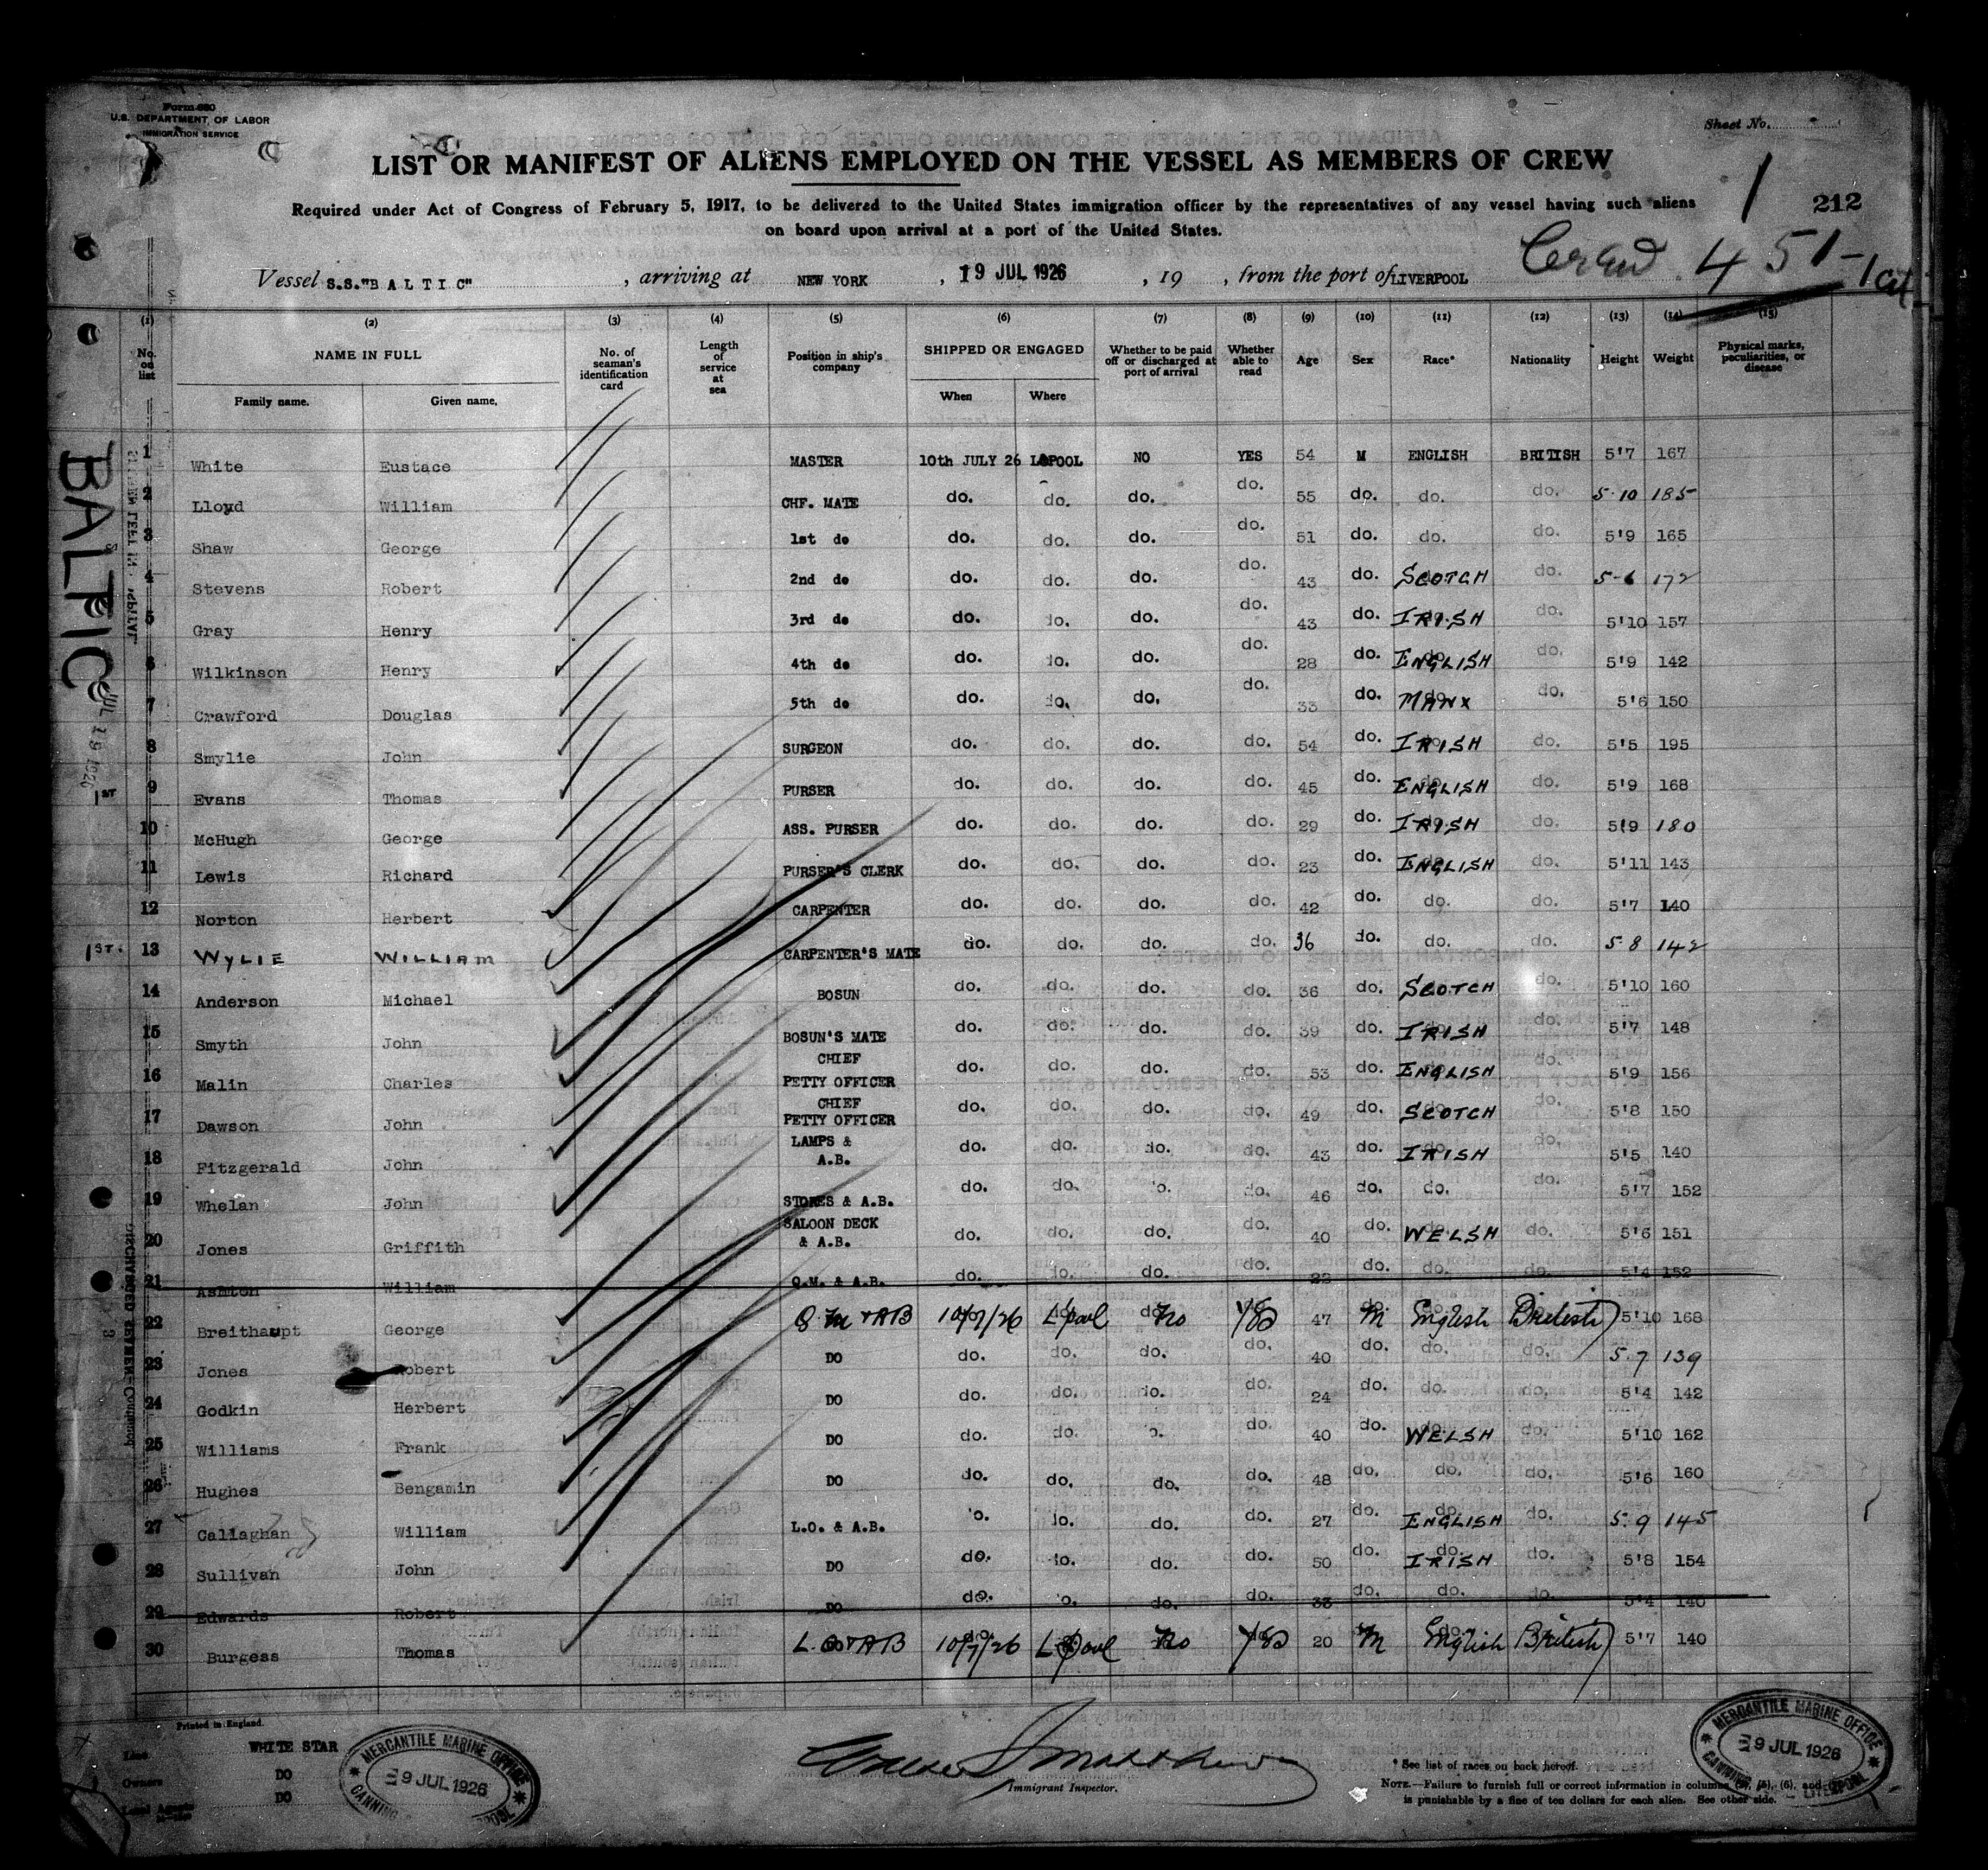 Form 680
U.S. DEPARTMENT OF LABOR
IMMIGRATION SERVICE
Sheet No.
LIST OR MANIFEST OF ALIENS EMPLOYED ON THE VESSEL AS MEMBERS OF CREW
1
212
Required under Act of Congress of February 5, 1917, to be delivered to the United States immigration officer by the representatives of any vessel having such aliens
on board upon arrival at a port of the United States.
451-
Vessel S.S."BALTIC", arriving at NEW YORK, 19 JUL 1926, 19 , from the port of LIVERPOOL
(1) (2) (3) (4) (5) (6) (7) (8) (9) (10) (11) (12) (13) (14) (15)
No. on list NAME IN FULL Family name. Given name. No. of seaman's identification card Length of service at sea Position in ship's company SHIPPED OR ENGAGED When Where Whether to be paid off or discharged at port of arrival Whether able to read Age Sex Race* Nationality Height Weight Physical marks, peculiarities, or disease
BALTIC
JUL 19 1926
1 White Eustace MASTER 10th JULY 26 LPOOL NO YES 54 M ENGLISH BRITISH 5'7 167
2 Lloyd William CHF. MATE do. do. do. do. 55 do. do. do. 5-10 185
3 Shaw George 1st do do. do. do. do. 51 do. do. do. 5'9 165
4 Stevens Robert 2nd do do. do. do. do. 43 do. SCOTCH do. 5-6 172
5 Gray Henry 3rd do do. do. do. do. 43 do. IRISH do. 5'10 157
6 Wilkinson Henry 4th do do. do. do. do. 28 do. ENGLISH do. 5'9 142
7 Crawford Douglas 5th do do. do. do. do. 33 do. MANX do. 5'6 150
8 Smylie John SURGEON do. do. do. do. 54 do. IRISH do. 5'5 195
1ST 9 Evans Thomas PURSER do. do. do. do. 45 do. ENGLISH do. 5'9 168
10 McHugh George ASS. PURSER do. do. do. do. 29 do. IRISH do. 5'9 180
11 Lewis Richard PURSER'S CLERK do. do. do. do. 23 do. ENGLISH do. 5'11 143
12 Norton Herbert CARPENTER do. do. do. do. 42 do. do. do. 5'7 140
1ST. 13 WYLIE WILLIAM CARPENTER'S MATE do. do. do. do. 36 do. do. do. 5-8 142
14 Anderson Michael BOSUN do. do. do. do. 36 do. SCOTCH do. 5'10 160
15 Smyth John BOSUN'S MATE do. do. do. do. 39 do. IRISH do. 5'7 148
16 Malin Charles CHIEF PETTY OFFICER do. do. do. do. 53 do. ENGLISH do. 5'9 156
17 Dawson John CHIEF PETTY OFFICER do. do. do. do. 49 do. SCOTCH do. 5'8 150
18 Fitzgerald John LAMPS & A.B. do. do. do. do. 43 do. IRISH do. 5'5 140
19 Whelan John STORES & A.B. do. do. do. do. 46 do. do. do. 5'7 152
20 Jones Griffith SALOON DECK & A.B. do. do. do. do. 40 do. WELSH do. 5'6 151
21 Ashton William Q.M. & A.B. do. do. do. do. 22 do. do. do. 5'4 152
22 Breithaupt George Q.M & AB 10/7/26 L'pool No Yes 47 M English British 5'10 168
23 Jones Robert DO do. do. do. do. 40 do. do. do. 5.7 139
24 Godkin Herbert DO do. do. do. do. 24 do. do. do. 5'4 142
25 Williams Frank DO do. do. do. do. 40 do. WELSH do. 5'10 162
26 Hughes Bengamin DO do. do. do. do. 48 do. do. do. 5'6 160
27 Callaghan William L.O. & A.B. do. do. do. do. 27 do. ENGLISH do. 5.9 145
28 Sullivan John DO do. do. do. do. 50 do. IRISH do. 5'8 154
29 Edwards Robert DO do. do. do. do. 33 do. do. do. 5'4 140
30 Burgess Thomas L.O & AB 10/7/26 L'pool No Yes 20 M English British 5'7 140
Printed in England.
Line WHITE STAR
Owners DO
Local Agents DO
MERCANTILE MARINE OFFICE
9 JUL 1926
CANNING
Immigrant Inspector.
* See list of races on back hereof.
NOTE.—Failure to furnish full or correct information in columns (5), (6), and
is punishable by a fine of ten dollars for each alien. See other side.
MERCANTILE MARINE OFFICE
9 JUL 1926
LIVERPOOL